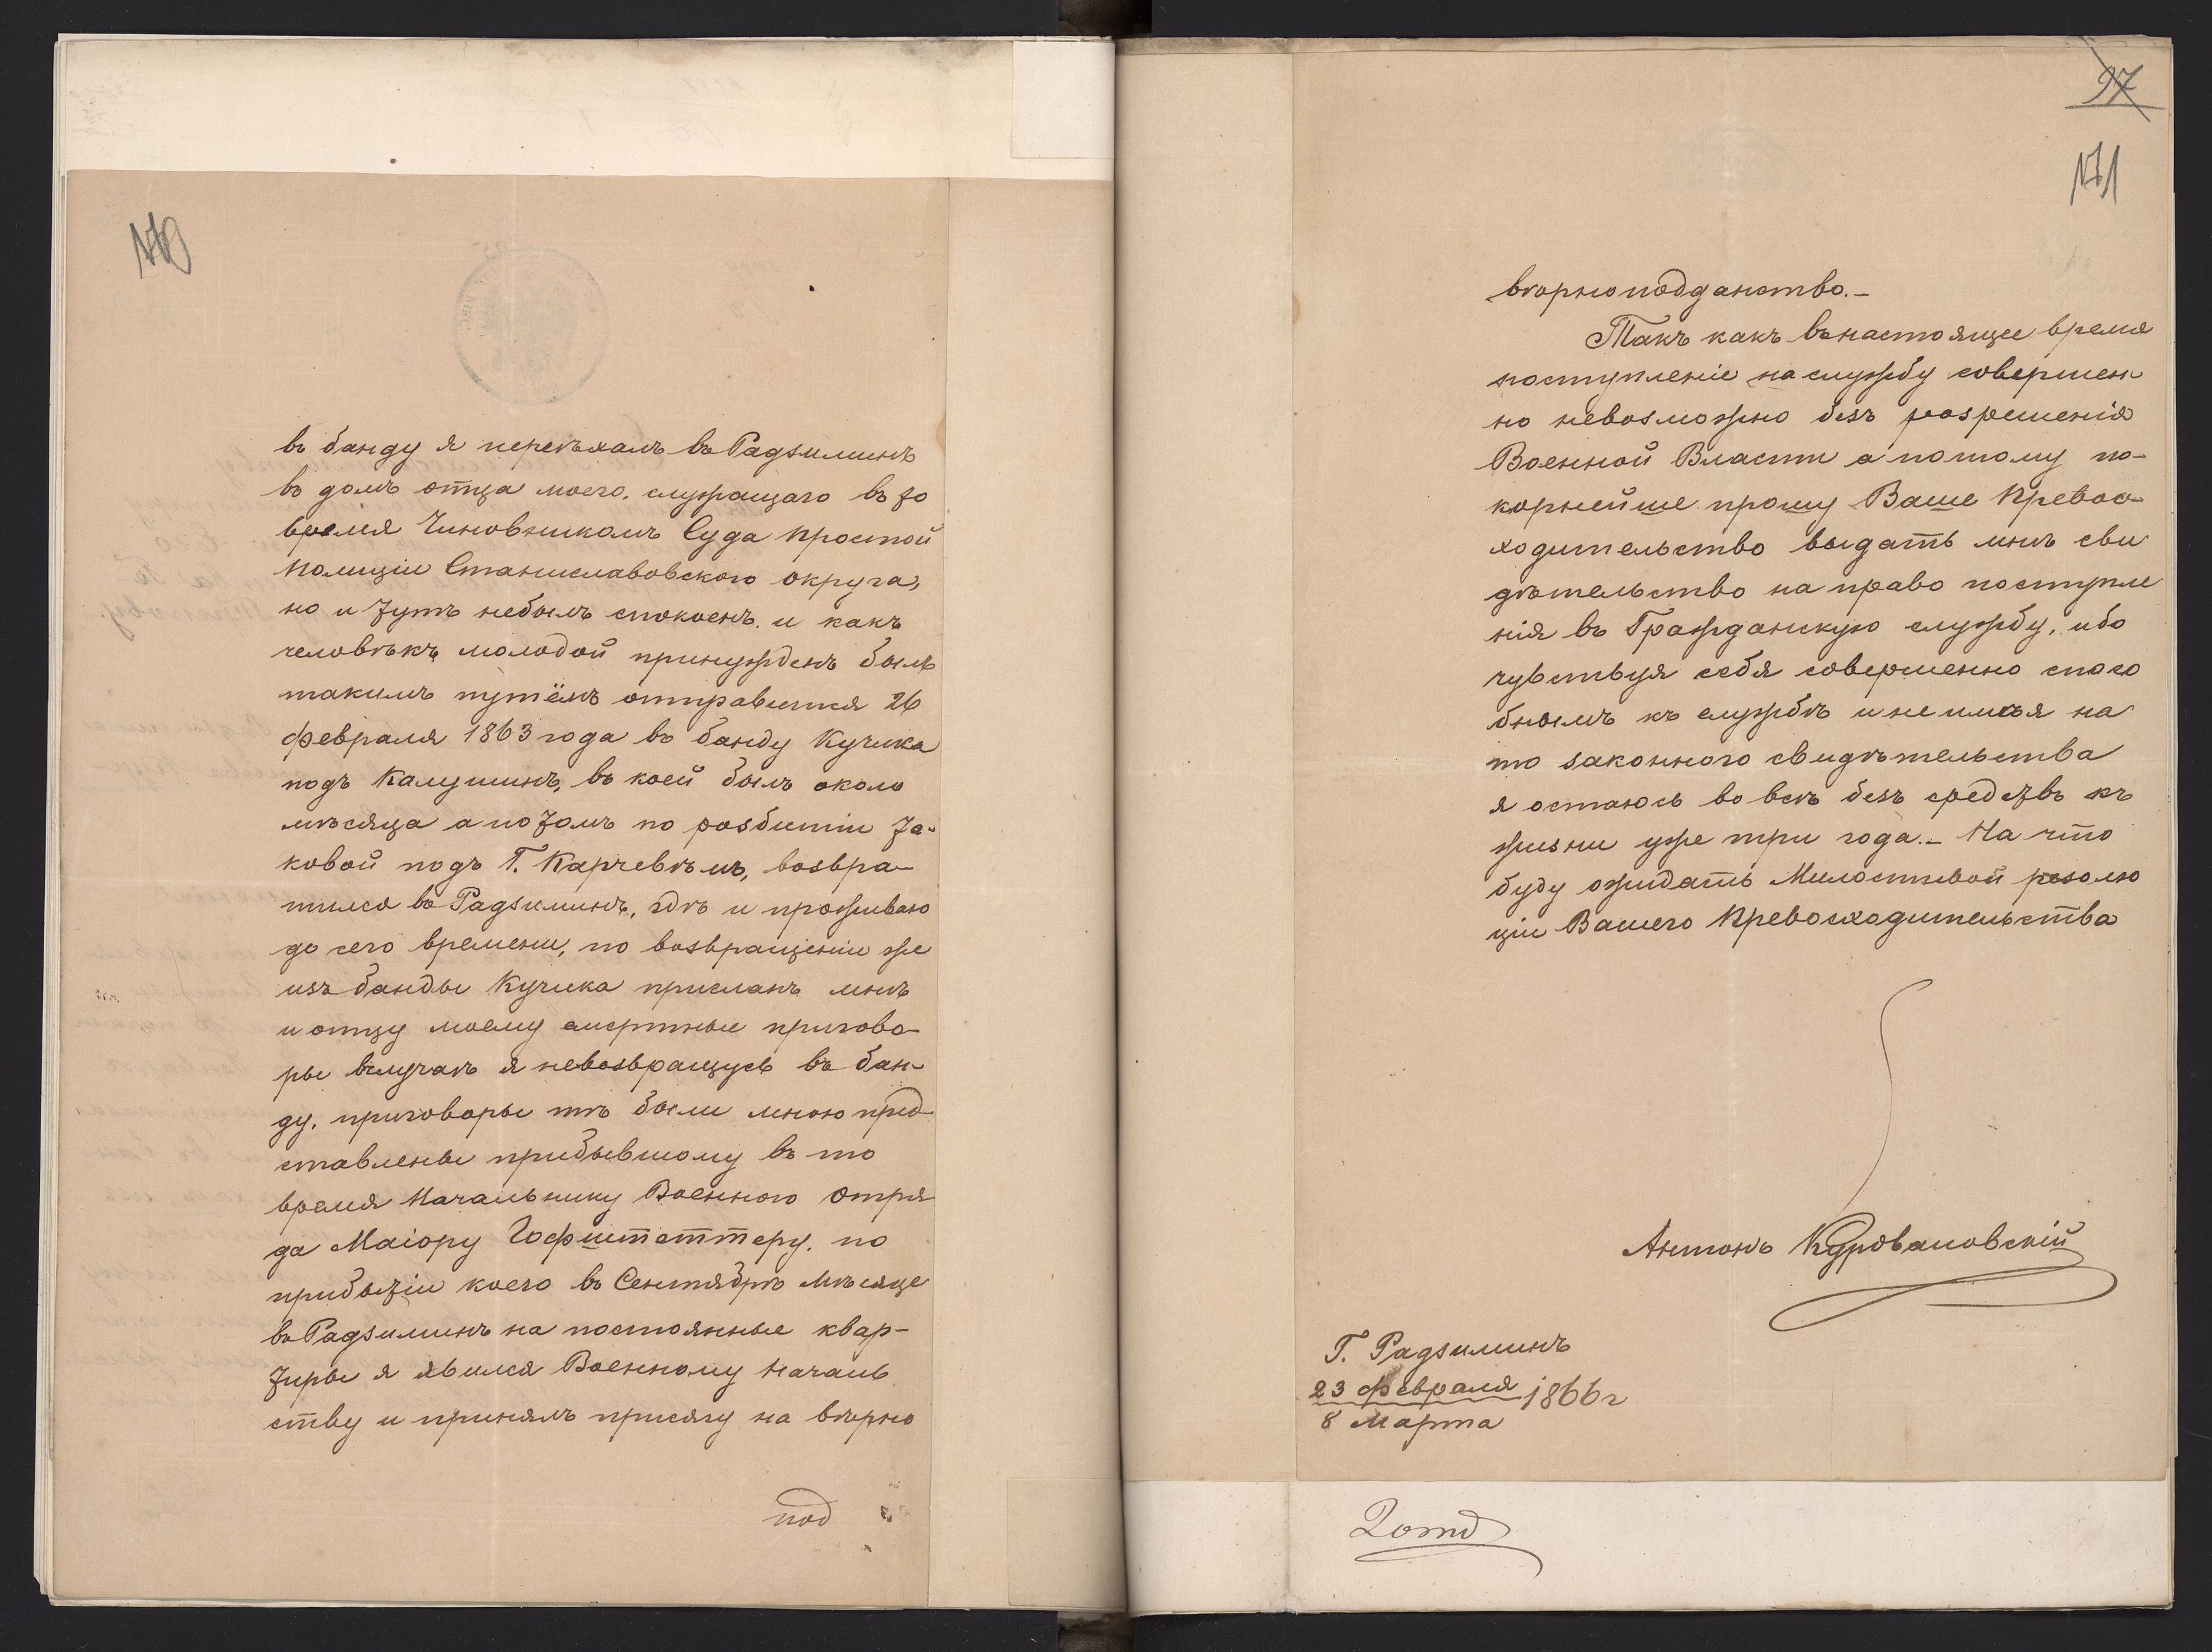 въ банду я переѣхалъ въ Радзиминъ
въ домъ отца моего, служащаго въ то
время Чиновникомъ Суда Простой
Полиціи Станиславовского округа,
но и тутъ небылъ спокоенъ, и какъ
человѣкъ молодой принужденъ былъ
такимъ путёмъ отправится 26
февраля 1863 года въ банду Кучика
подъ Калушинъ, въ коей былъ около
мѣсяца а потомъ по розбитіи та-
ковой подъ Г. Карчевѣмъ, возвра-
тился въ Радзиминъ, гдѣ и проживаю
до сего времени, по возвращеніи же
изъ банды Кучика присланъ мнѣ
и отцу моему смертные пригово-
ры вслучаѣ я невозвращусь въ бан-
ду, приговоры тѣ были мною пред
ставлены прибывшому въ то
время Начальнику Военного Отря
да Маіору Гофштеттеру, по
прибытіи коего въ Сентябрѣ мѣсяце
въ Радзиминъ на постоянные квар-
тиры я явился Военному Началь
ству и принялъ присягу на вѣрно
под
97
вѣрноподданство.-
Такъ какъ въ настоящее время
поступленіе на службу совершен
но невозможно безъ розрешенія
Военной Власти а потому по-
корнейше прошу Ваше Превос-
ходительство выдать мнѣ сви
дѣтельство на право поступле
нія въ Гражданскую службу, ибо
чувствуя себя совершенно спосо
бнымъ къ службѣ и не имѣя на
то законного свидѣтельства
я остаюсь вовсѣ безъ средствъ къ
жизни уже три года.- На что
буду ожидать Милостивой резолю
ціи Вашего Превосходительства
Антонъ
Г. Радзиминъ
23 февраля 1866 г
8 Марта